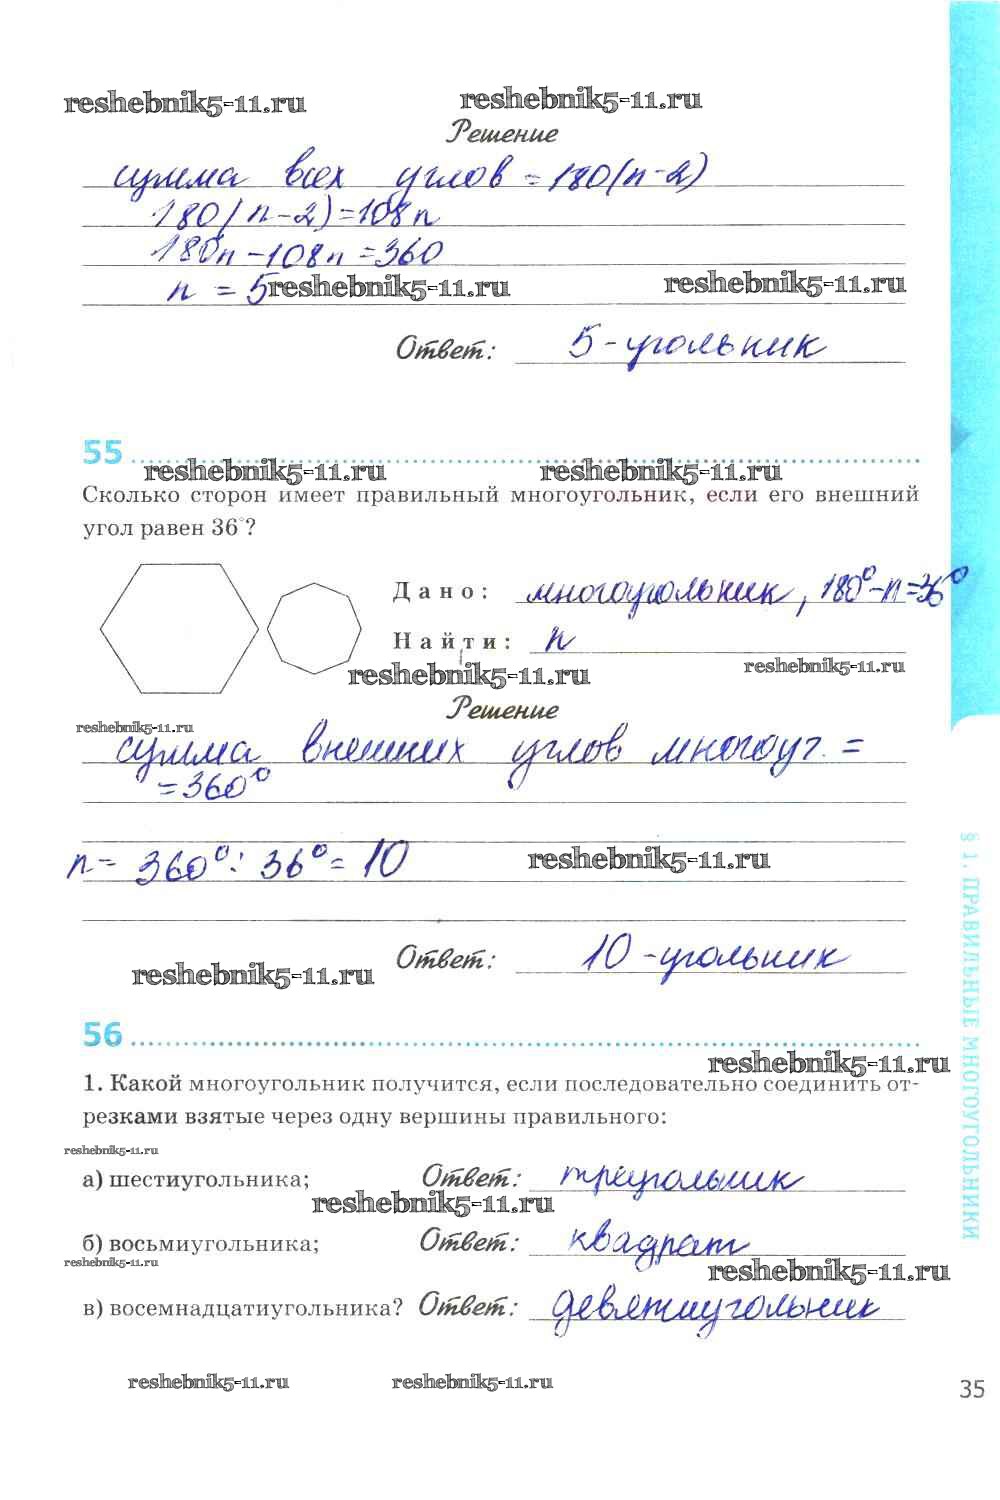 reshebnik5-11.ru reshebnik5-11.ru
Решение
сумма всех углов = 180(n-2)
180(n-2)=108n
180n-108n=360
n = 5 reshebnik5-11.ru reshebnik5-11.ru
Ответ: 5-угольник
55
reshebnik5-11.ru reshebnik5-11.ru
Сколько сторон имеет правильный многоугольник, если его внешний
угол равен 36°?
Дано: многоугольник, 180°-n=36°
Найти: n
reshebnik5-11.ru reshebnik5-11.ru
Решение
reshebnik5-11.ru
сумма внешних углов многоуг. =
=360°
n= 360°: 36°= 10 reshebnik5-11.ru
Ответ: 10-угольник
reshebnik5-11.ru
56
reshebnik5-11.ru
1. Какой многоугольник получится, если последовательно соединить от-
резками взятые через одну вершины правильного:
reshebnik5-11.ru
а) шестиугольника; Ответ: треугольник
reshebnik5-11.ru
б) восьмиугольника; Ответ: квадрат
reshebnik5-11.ru reshebnik5-11.ru
в) восемнадцатиугольника? Ответ: девятиугольник
reshebnik5-11.ru reshebnik5-11.ru
35
§ 1. ПРАВИЛЬНЫЕ МНОГОУГОЛЬНИКИ